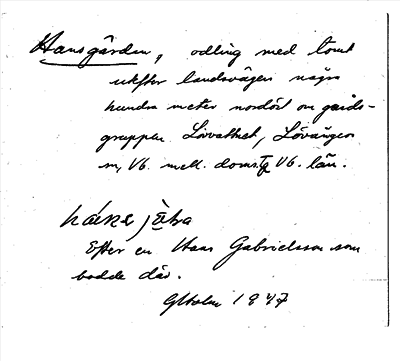 Hansgården, odling med tomt
utefter landsvägen några
hundra meter nordöst om gårds-
gruppen Lövåsthet, Lövången
m, Vb. mell. doms. Vb. län.
Efter en Hans Gabrielsson som
bodde där.
GHolm 1947